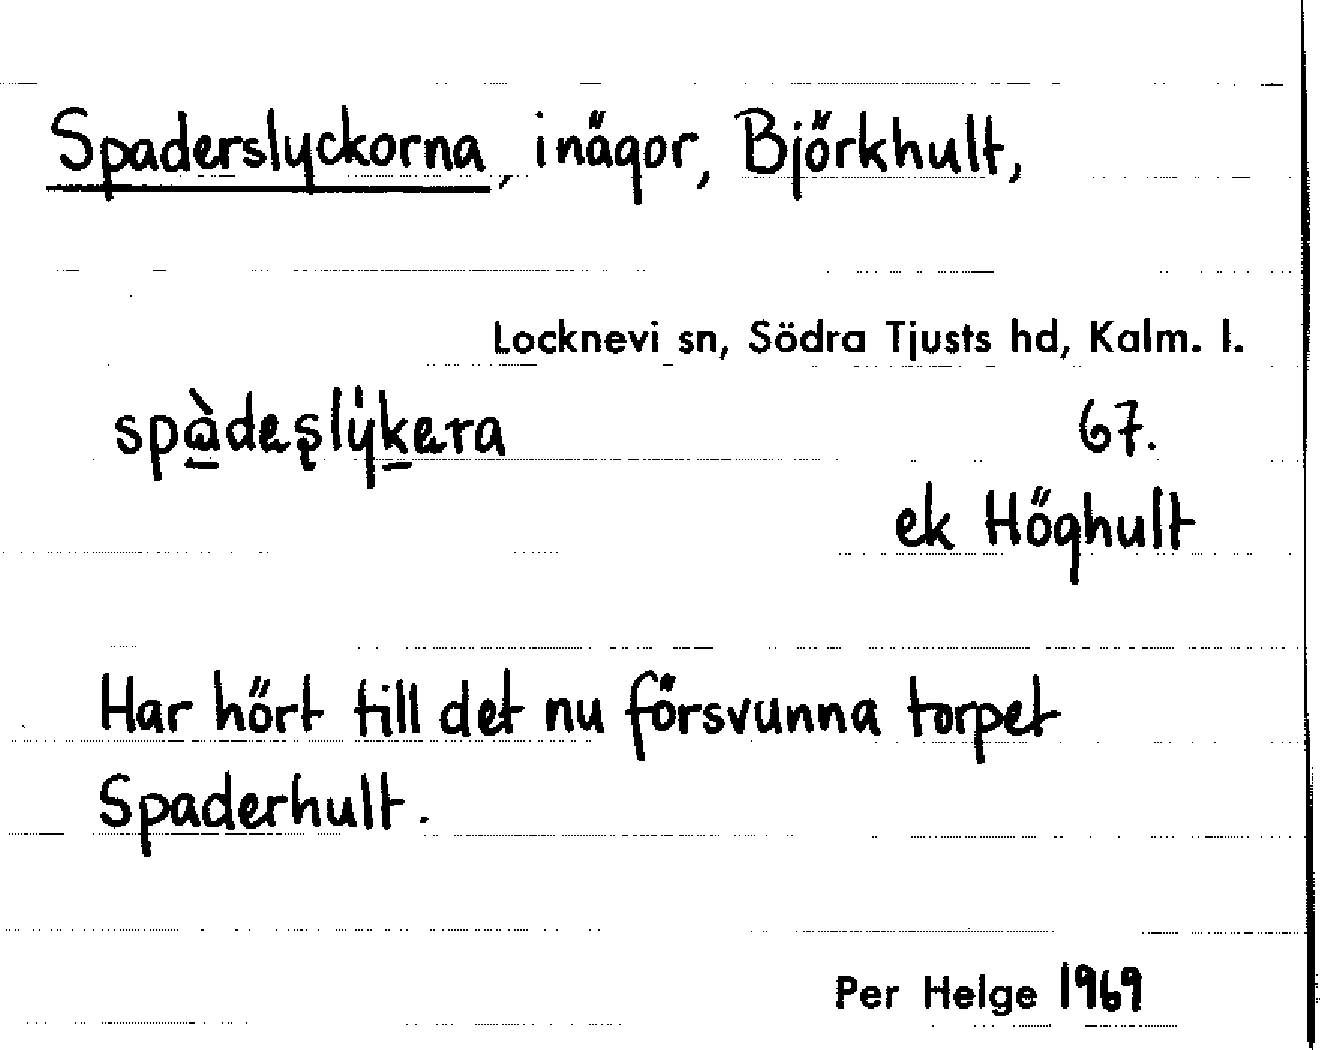 Spaderslyckorna, inägor, Björkhult,
Locknevi sn, Södra Tjusts hd, Kalm. l.
spàdeşlykera 67.
ek Höghult
Har hört till det nu försvunna torpet
Spaderhult.
Per Helge 1969